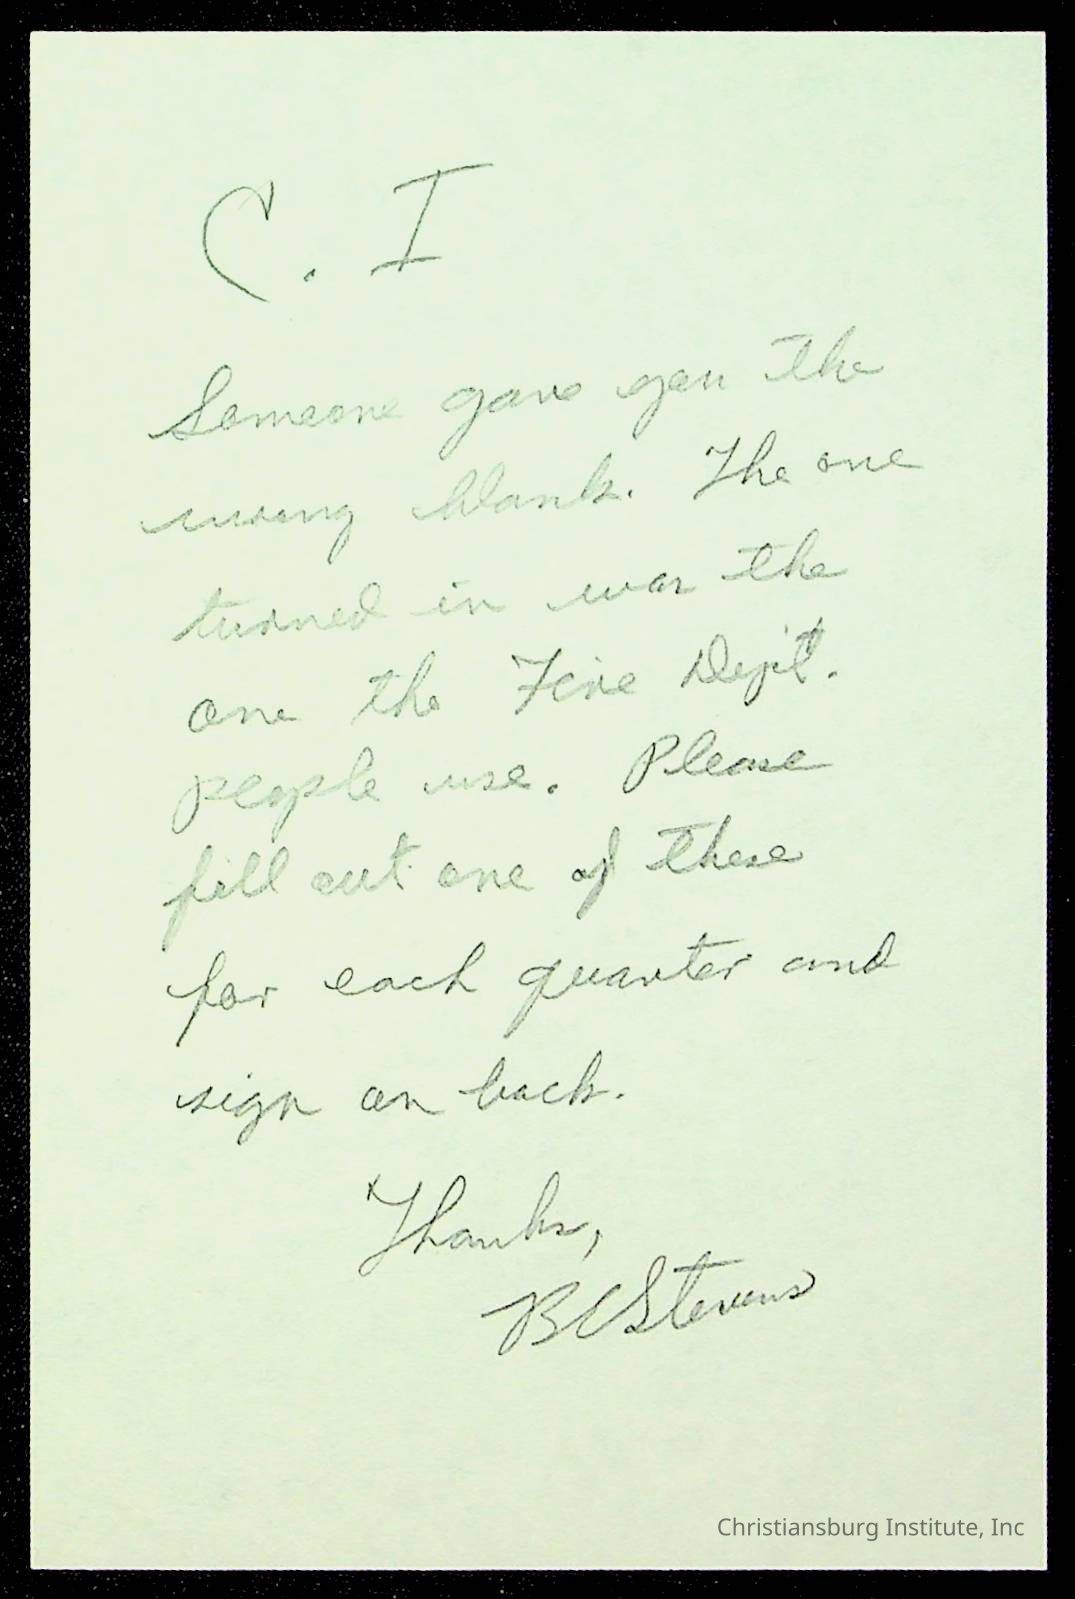 C. I
Someone gave you the
wrong blank. The one
turned in was the
one the Fire Dept.
people use. Please
fill out one of these
for each quarter and
sign on back.
Thanks,
BC Stevens
Christiansburg Institute, Inc